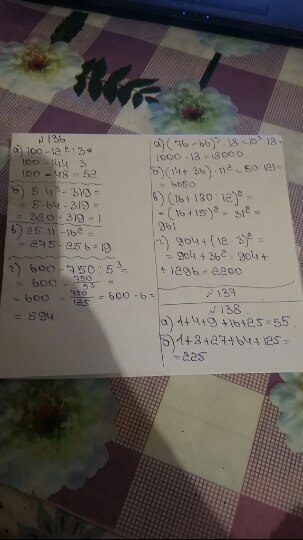 №136
а) 100-12² : 3=
100 - 144 : 3
100 - 48 = 52
б) 5·4³ - 319 =
= 5·64 - 319 =
= 320 - 319 = 1
в) 25·11 - 16² =
= 275 - 256 = 19
г) 600 - 750 : 5³ =
= 600 - 750/5³ =
= 600 - 750/125 = 600 - 6 =
= 594
а) (76 - 66)³ · 13 = 10³ · 13 =
1000 · 13 = 13000
б) (14 + 36) · 11² = 50 · 121 =
= 6050
в) (16 + 180 : 12)² =
= (16 + 15)² = 31² =
961
г) 904 + (12 · 3)² =
= 904 + 36² = 904 +
+ 1296 = 2200
№137
№138
а) 1+4+9+16+25=55
б) 1+8+27+64+125=
=225